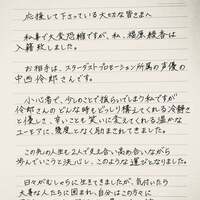 応援して下さっている大切な皆さまへ
私事で大変恐縮ですが、私、福原綾香は
入籍致しました。
お相手は、スターダストプロモーション所属の声優の
中西伶郎さんです。
小心者で、少しのことで揺らいでしまう私ですが
伶郎さんのどんな時もどっしり構えてくれる冷静さ
と優しさ、辛いことも笑いに変えてくれる温かな
ユーモアに、幾度となく励まされてきました。
この先の人生も2人で支え合い高め合いながら
歩んでいこうと決心し、このような運びとなりました。
日々がむしゃらに生きてきましたが、気付いたら
大事な人たちに囲まれ、自分はこの方々に